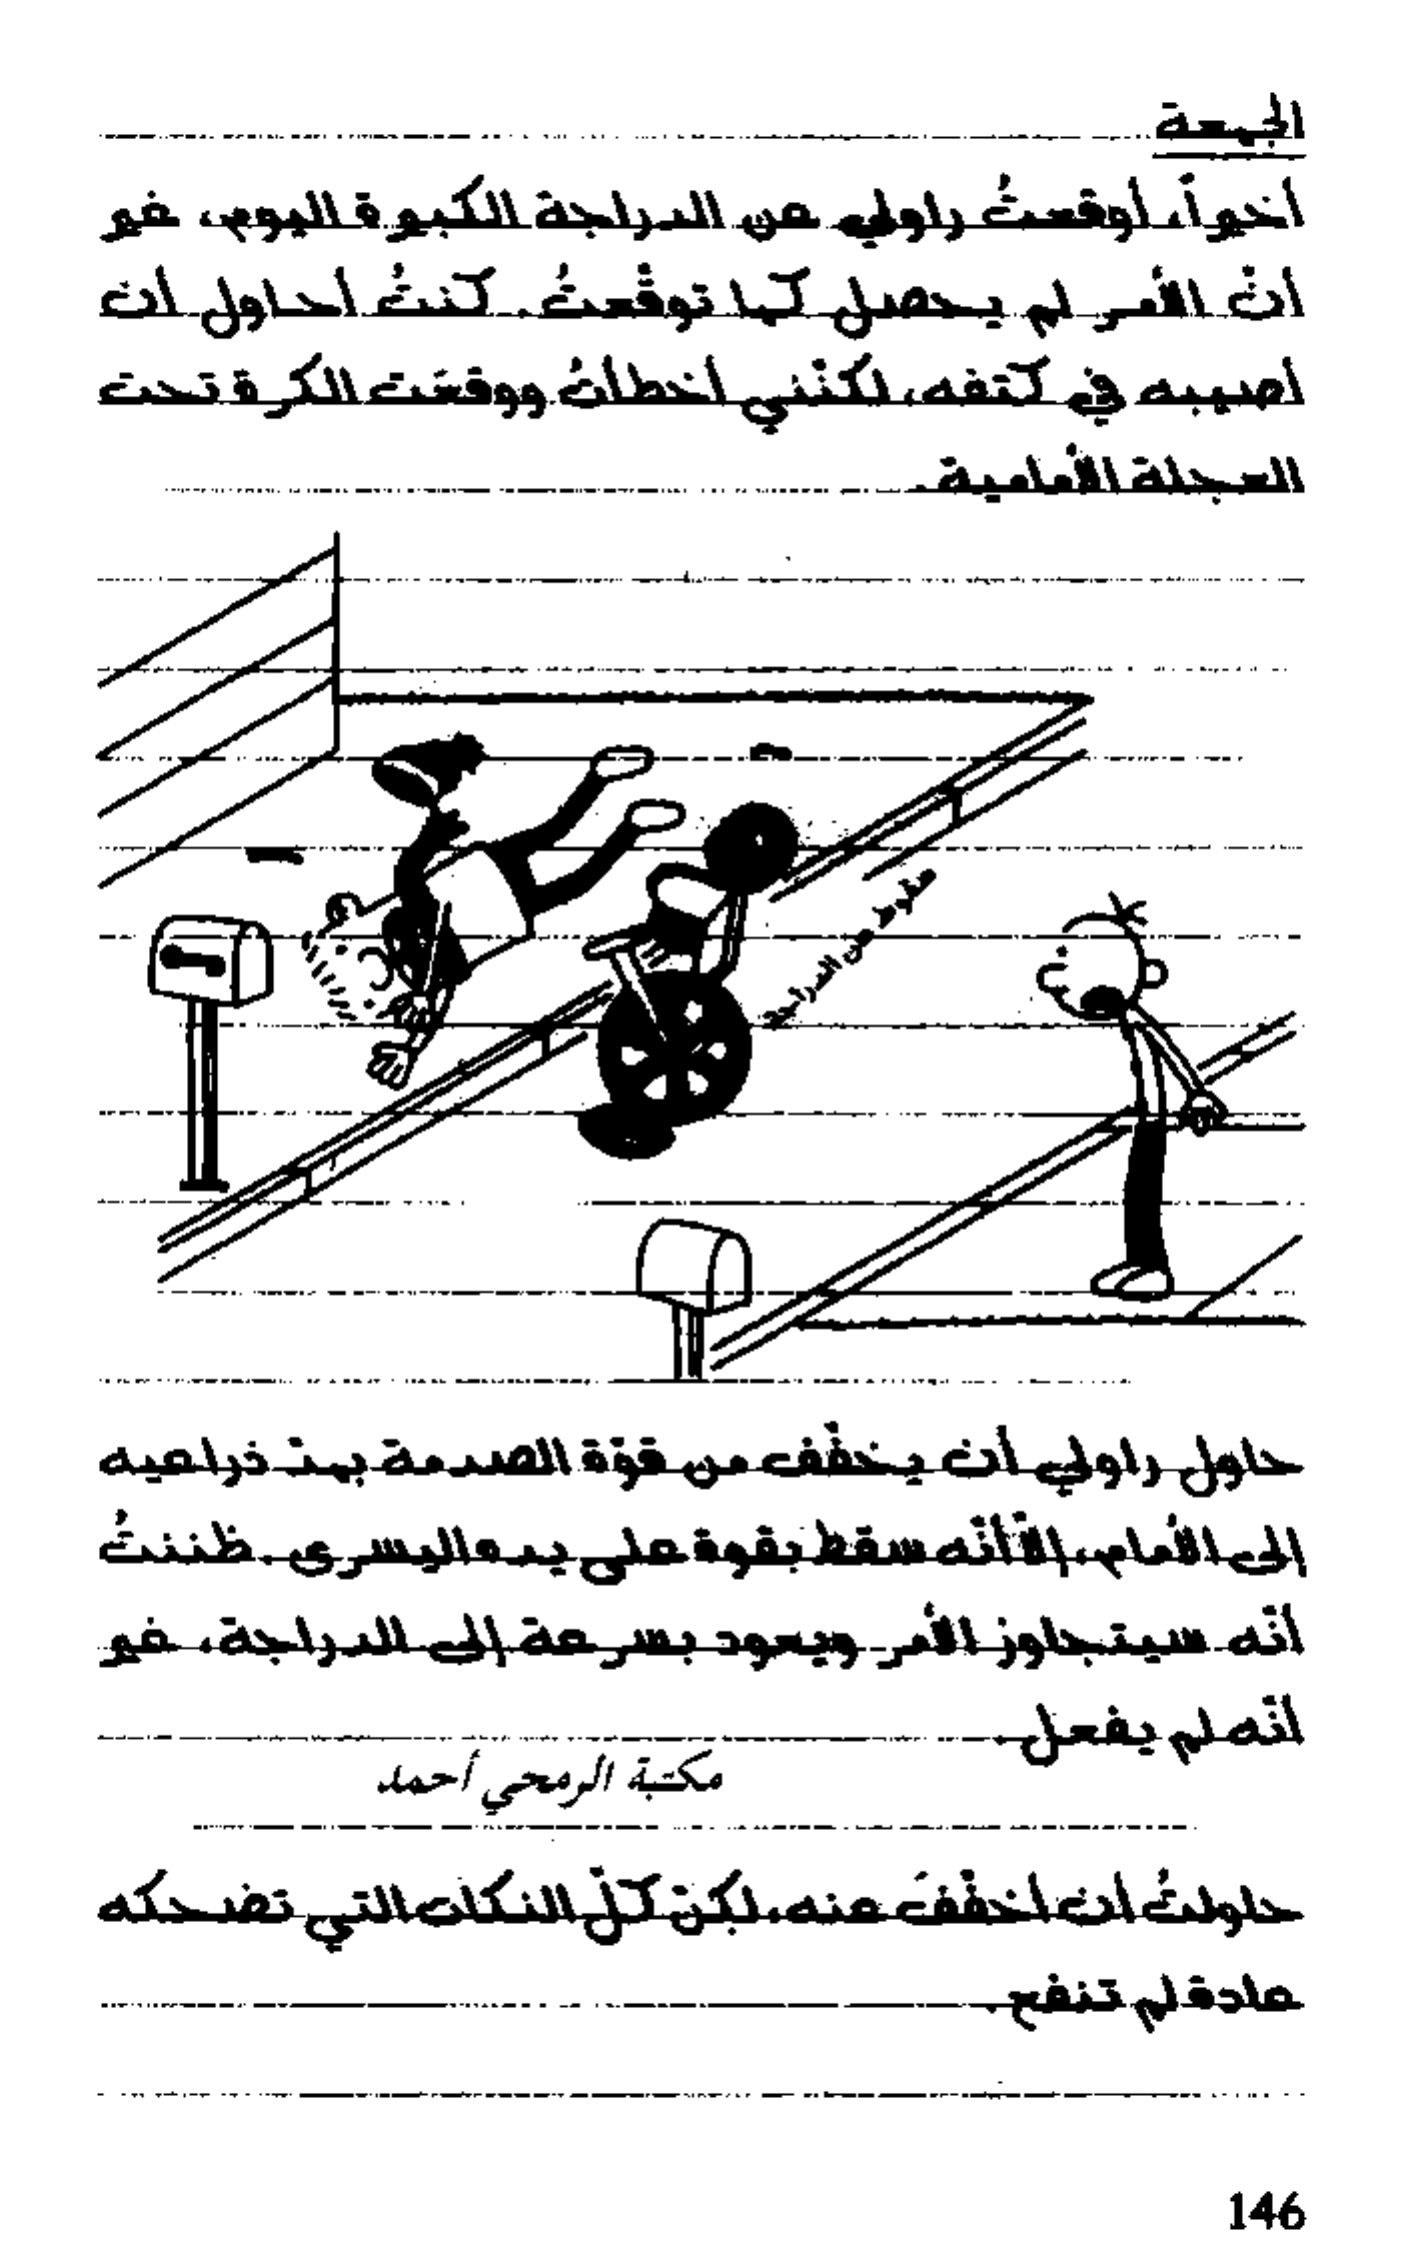 الجمعة
أخيراً، أوقعتُ راولي عن الدراجة الكبيرة اليوم، غير
أنّ الأمر لم يحصل كما توقّعتُ. كنتُ أحاول أن
أصيبه في كتفه، لكنّني أخطأتُ ووقعَت الكرة تحت
العجلة الأمامية.
سقوط عن الدراجة
حاول راولي أن يخفّف من قوّة الصدمة بمدّ ذراعيه
إلى الأمام، إلاّ أنّه سقط بقوة على يده اليسرى. ظننتُ
أنّه سيتجاوز الأمر ويعود بسرعة إلى الدراجة، غير
أنّه لم يفعل.
مكتبة الرمحي أحمد
حاولتُ أن أخفّفَ عنه، لكنّ كلّ النكات التي تضحكه
عادة لم تنفع.
146